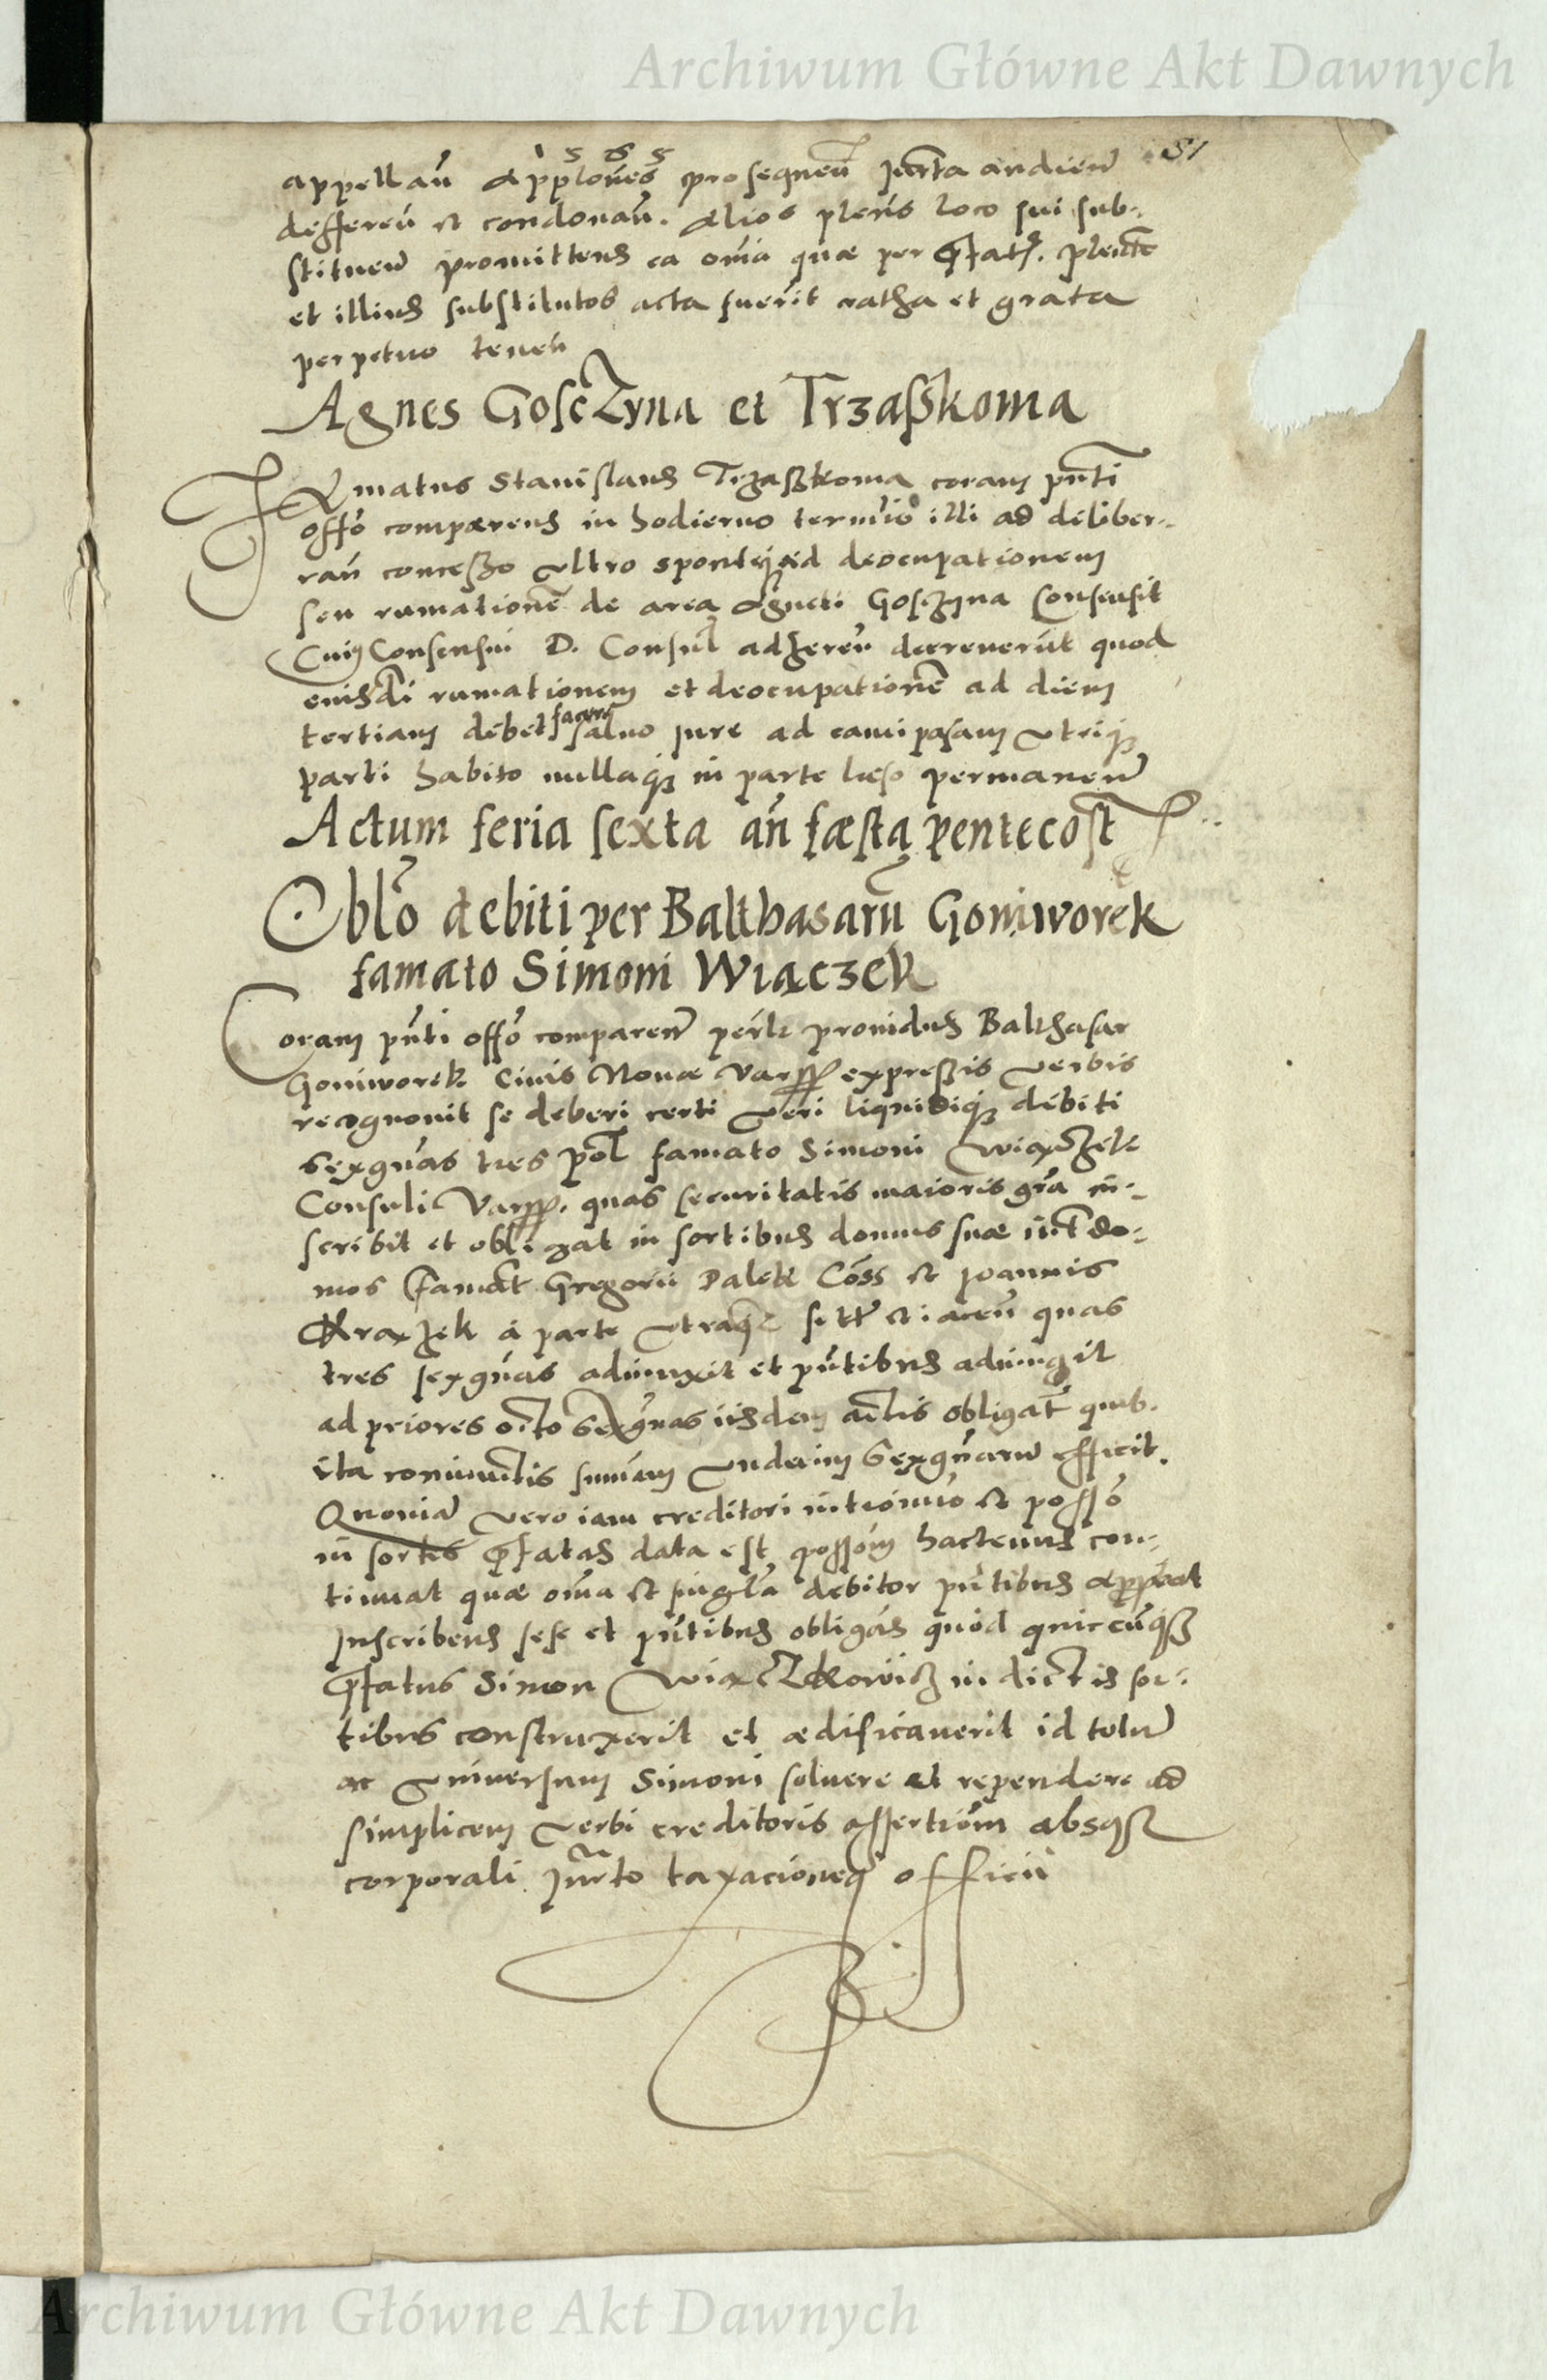 Archiwum Główne Akt Dawnych
1565
51
appellań Applońes prosequeń juxta audień
deffereń et condonań. Alios pleńs loco sui sub-
stitueń promittens ea omia quae per
et illius substitutos acta fuerit ratha et grata
perpetuo teneń
Agnes Gosczyna et Trzaskoma
Famatus Stanislaus Trzaskoma coram pnti
offo comparens in hodierno termio illi ad deliber-
rań concesso ultro sponteque ad deocupationem
seu rumationē de area Agneti Gosczyna Consensit
Cuius Consensui D. Consul adhereń decreverut quod
eiusdi rumationem et deocupationē ad diem
tertiam debet facere salvo jure ad utrique
parti habito nullaque in parte laeso permaneń
Actum feria sexta añ faesta pentecost
Oblo debiti per Balthasarū Goniworek
famato Simoni Wiączek
Coram pnti offo compareń providus Balthasar
Goniworek Civis Novae Vars expressis verbis
recognovit se deberi certi veri liquidique debiti
sexgńas tres pol famato Simoni Wiączek
Consuli Vars. quas securitatis maioris gra in-
scribit et obligat in sortibus domus suae iuxt do-
mos famat Gregorii Palek Coss et Joannis
Krazek a parte utraque et iaceń quas
tres sexgńas adiunxit et pntibus adiungit
ad priores octo sexgńas iisdem actis obligat quib.
ita coniunctis summam undecim sexgńarū efficit.
Quoniā vero iam creditori intromo et posso
in sortes pfatas data est possom hactenus con-
tinuat quae omia et singla debitor pntibus approbat
Inscribens sese et pntibus obligans quod quiccunque
pfatus Simon Wiączkowicz in dictis sor-
tibus construxerit et aedificaverit id totū
ac universum Simoni solvere et rependere ad
simplicem verbi creditoris assertiom absque
corporali Jurto taxacioneque officii
Archiwum Główne Akt Dawnych